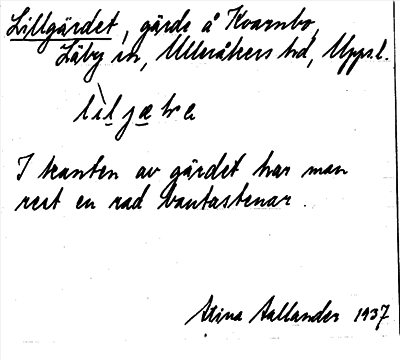 Lillgärdet, gärde å Kvarnbo,
Läby sn, Ulleråkers hd, Uppl.
I kanten av gärdet har man
rest en rad bautastenar.
Stina Aallander 1937